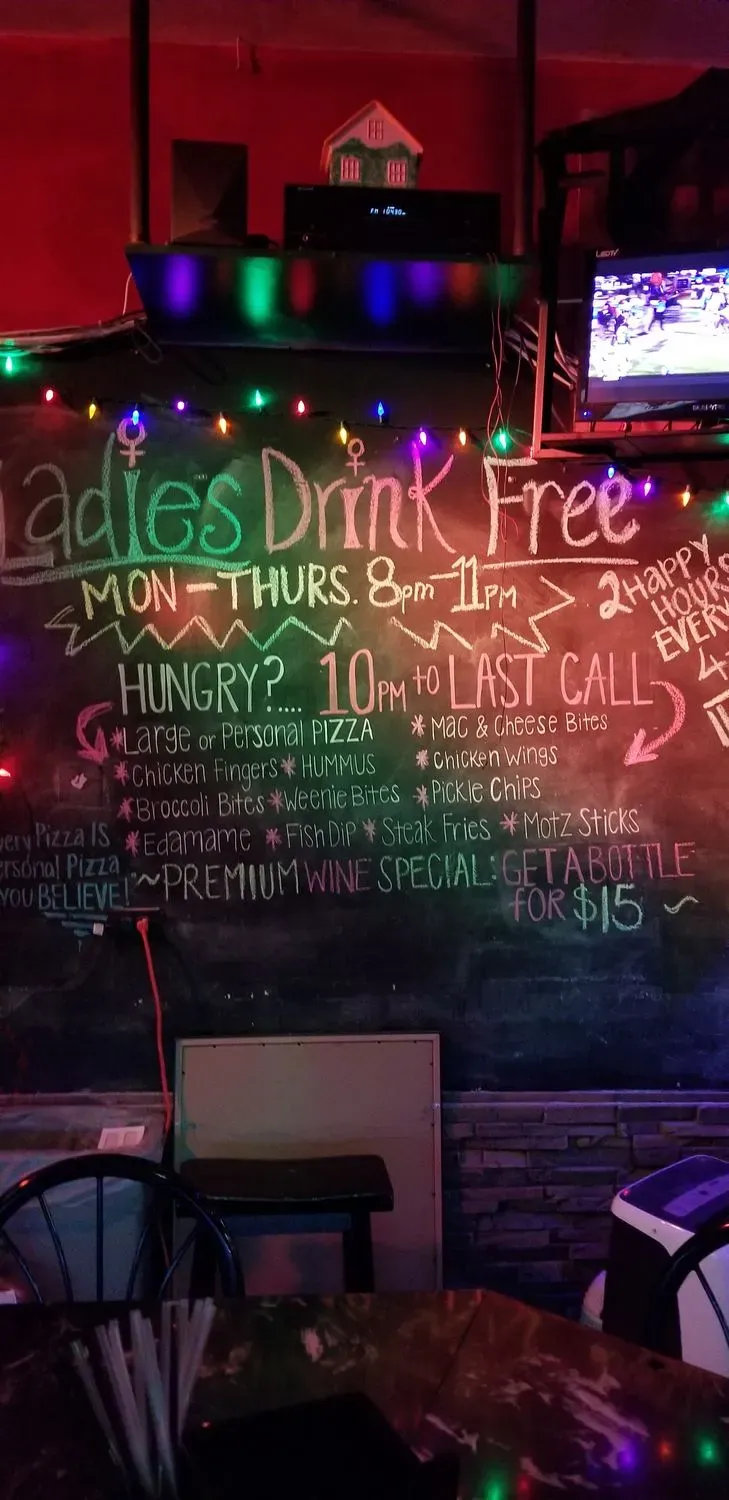 LEDTV
Ladies Drink Free
MON-THURS. 8pm-11PM
2 HAPPY
HOURS
EVERY
HUNGRY?.... 10PM to LAST CALL
*Large or Personal PIZZA *Mac & Cheese Bites
*Chicken Fingers *HUMMUS *Chicken Wings
*Broccoli Bites *Weenie Bites *Pickle Chips
*Edamame *Fish Dip *Steak Fries *Motz Sticks
Pizza IS
Pizza
YOU BELIEVE!
~PREMIUM WINE SPECIAL: GET A BOTTLE
FOR $15 ~